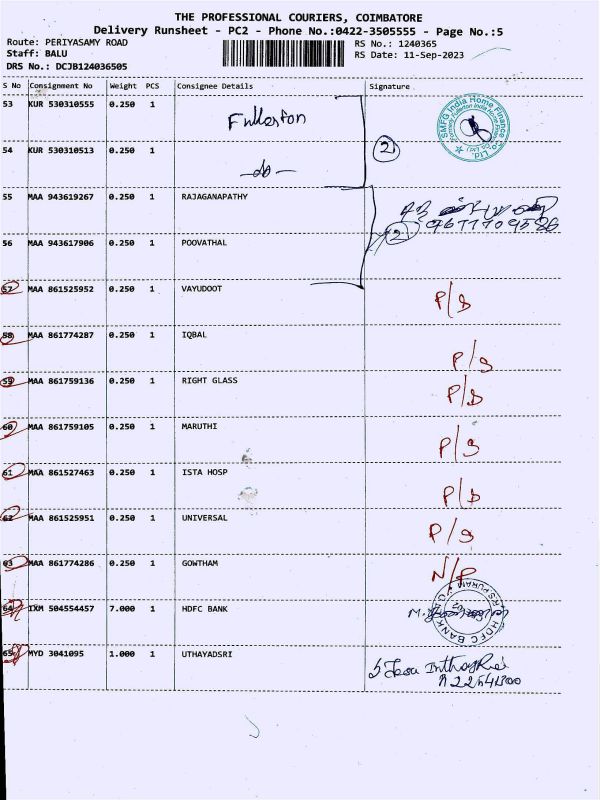 THE PROFESSIONAL COURIERS, COIMBATORE
Delivery Runsheet - PC2 - Phone No.:0422-3505555 - Page No.:5
Route: PERIYASAMY ROAD
RS No.: 1240365
Staff: BALU
RS Date: 11-Sep-2023
DRS No.: DCJB124036505
S No Consignment No Weight PCS Consignee Details Signature
53 KUR 530310555 0.250 1 Fullerton
SMFG India Home Finance Co. Ltd.
(Formerly Fullerton India Home Finance Co. Ltd.)
54 KUR 530310513 0.250 1 -do- 2
55 MAA 943619267 0.250 1 RAJAGANAPATHY
9677709586
56 MAA 943617906 0.250 1 POOVATHAL 2
57 MAA 861525952 0.250 1 VAYUDOOT P/S
58 MAA 861774287 0.250 1 IQBAL P/S
59 MAA 861759136 0.250 1 RIGHT GLASS P/S
60 MAA 861759105 0.250 1 MARUTHI P/S
61 MAA 861527463 0.250 1 ISTA HOSP P/S
62 MAA 861525951 0.250 1 UNIVERSAL P/S
63 MAA 861774286 0.250 1 GOWTHAM N/P
64 IXM 504554457 7.000 1 HDFC BANK
HDFC BANK RS PURAM
65 MYD 3041095 1.000 1 UTHAYADSRI